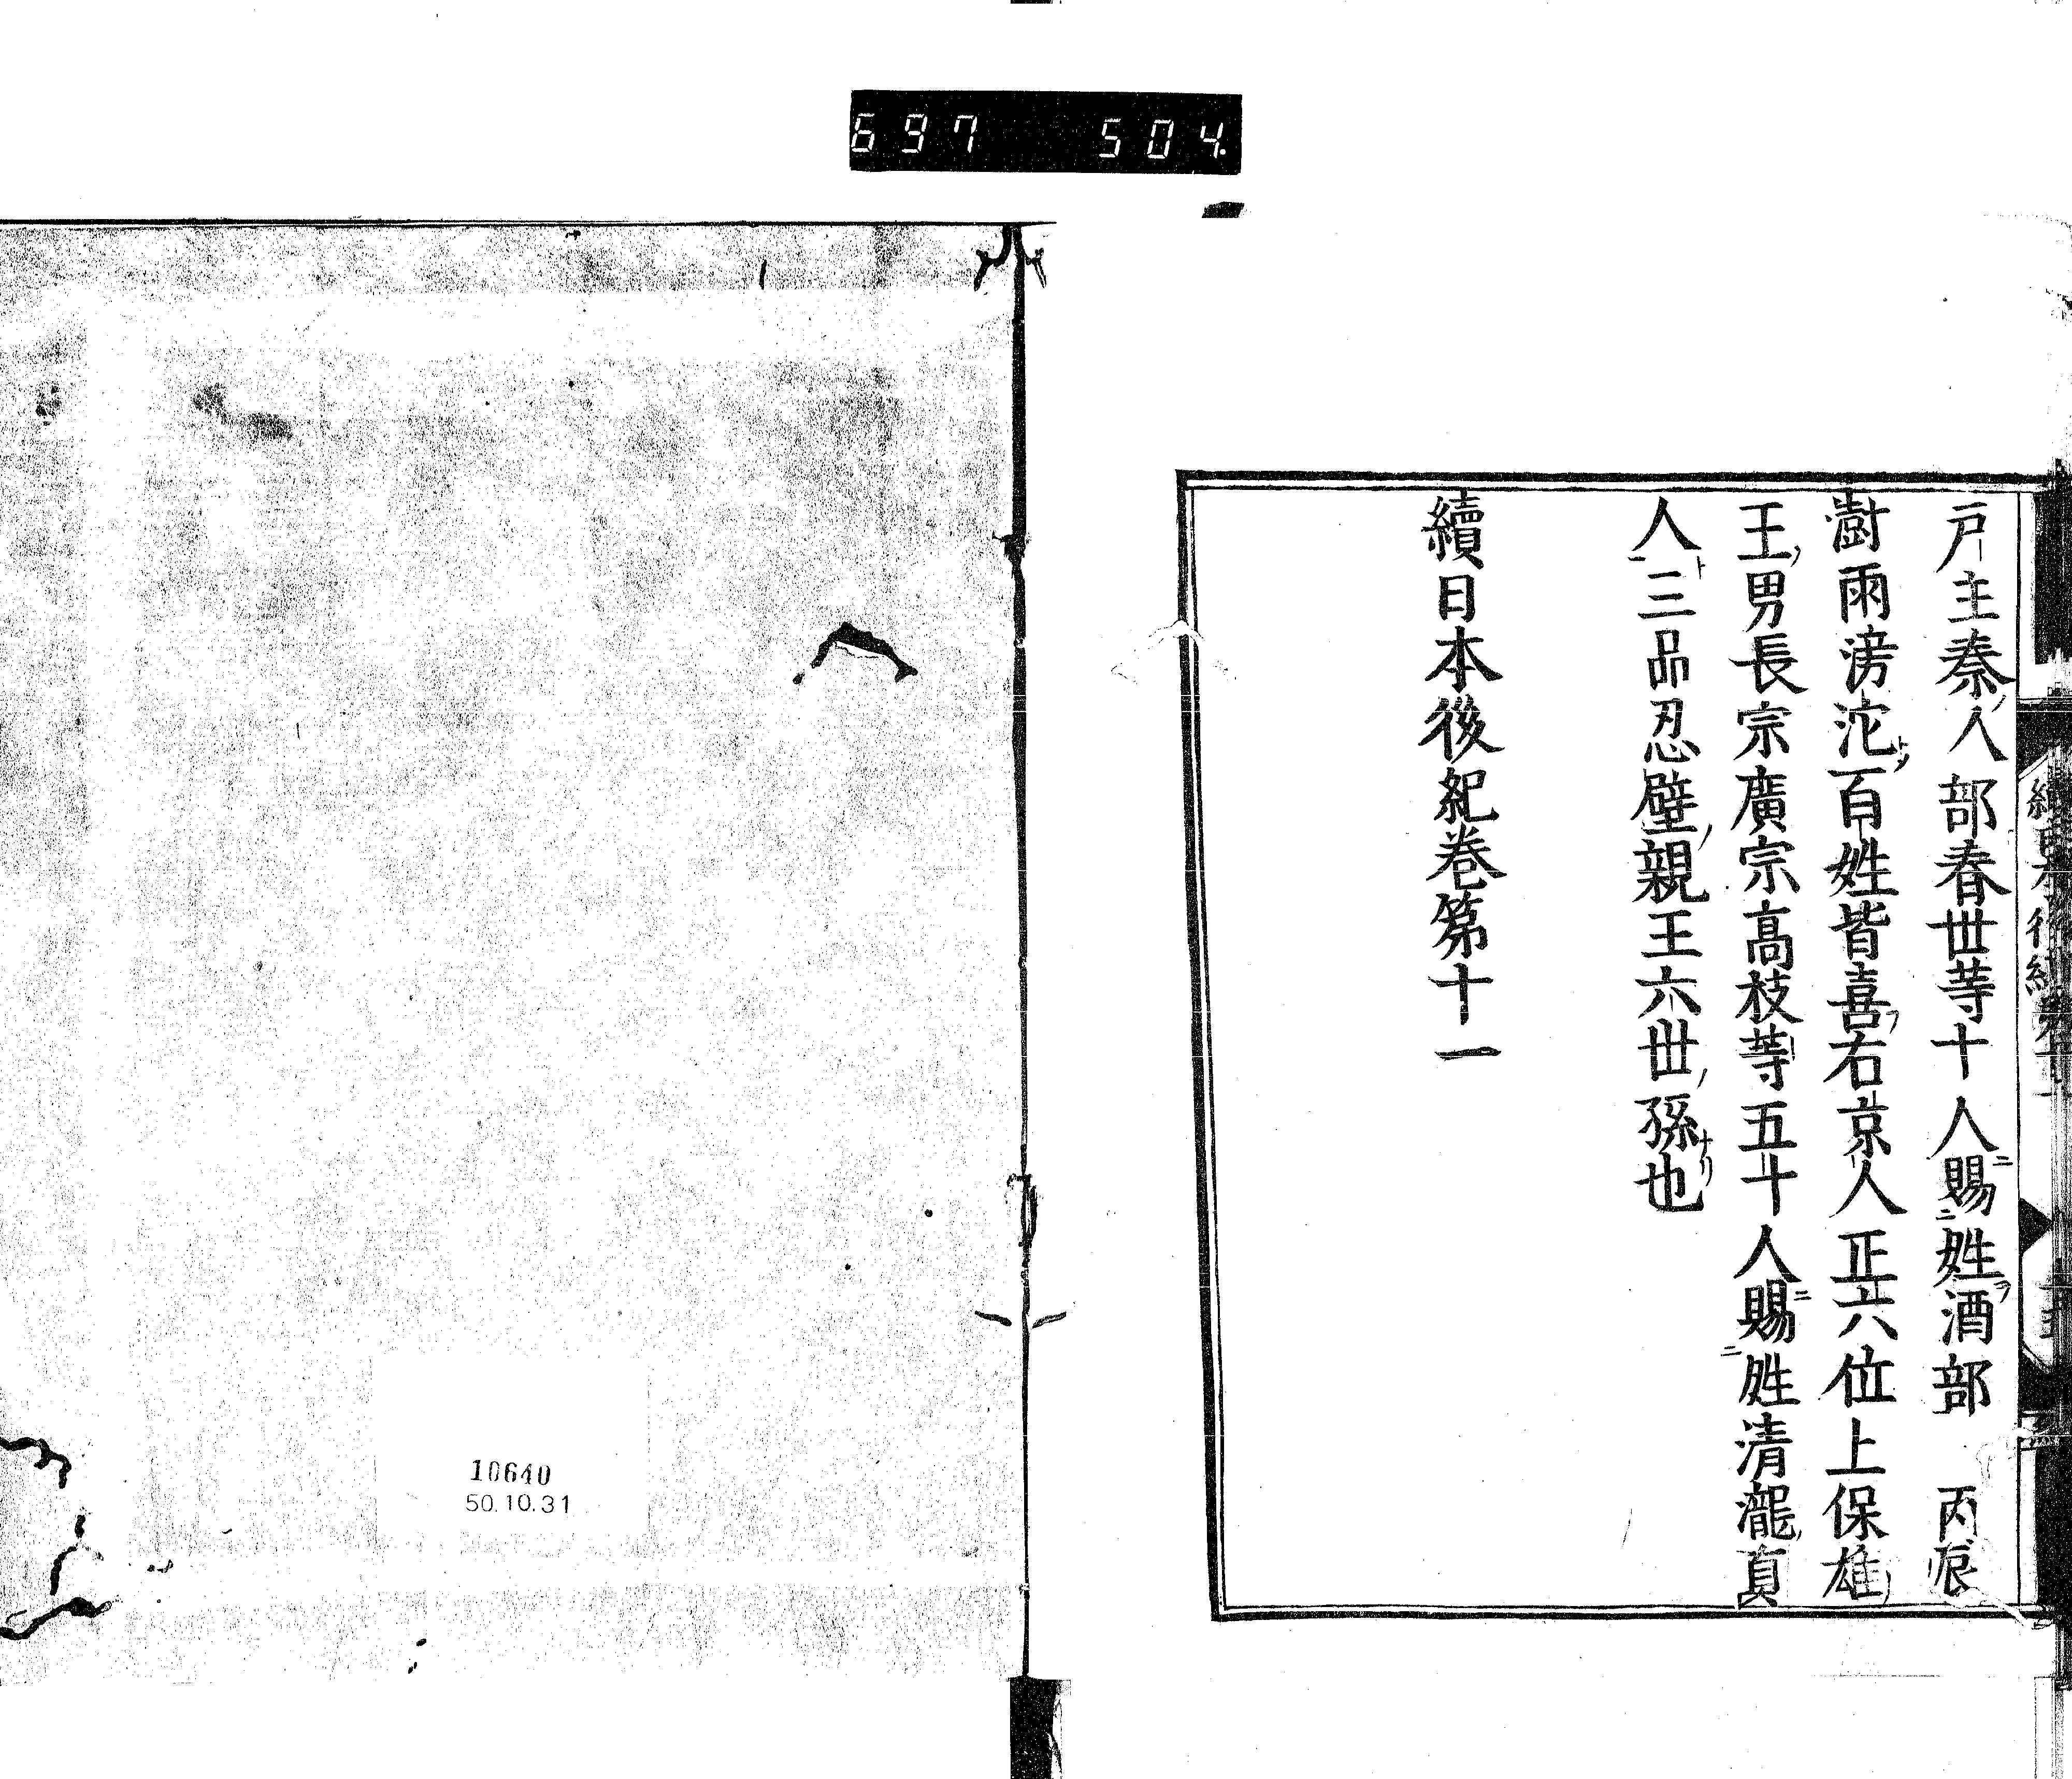 697 504.
戸主秦人部春世等十人賜姓酒部　丙辰
澍雨滂沱百姓皆喜右京人正六位上保雄
王男長宗廣宗高枝等五十人賜姓清瀧真
人三品忍壁親王六世孫也
續日本後紀卷第十一
10640
50.10.31